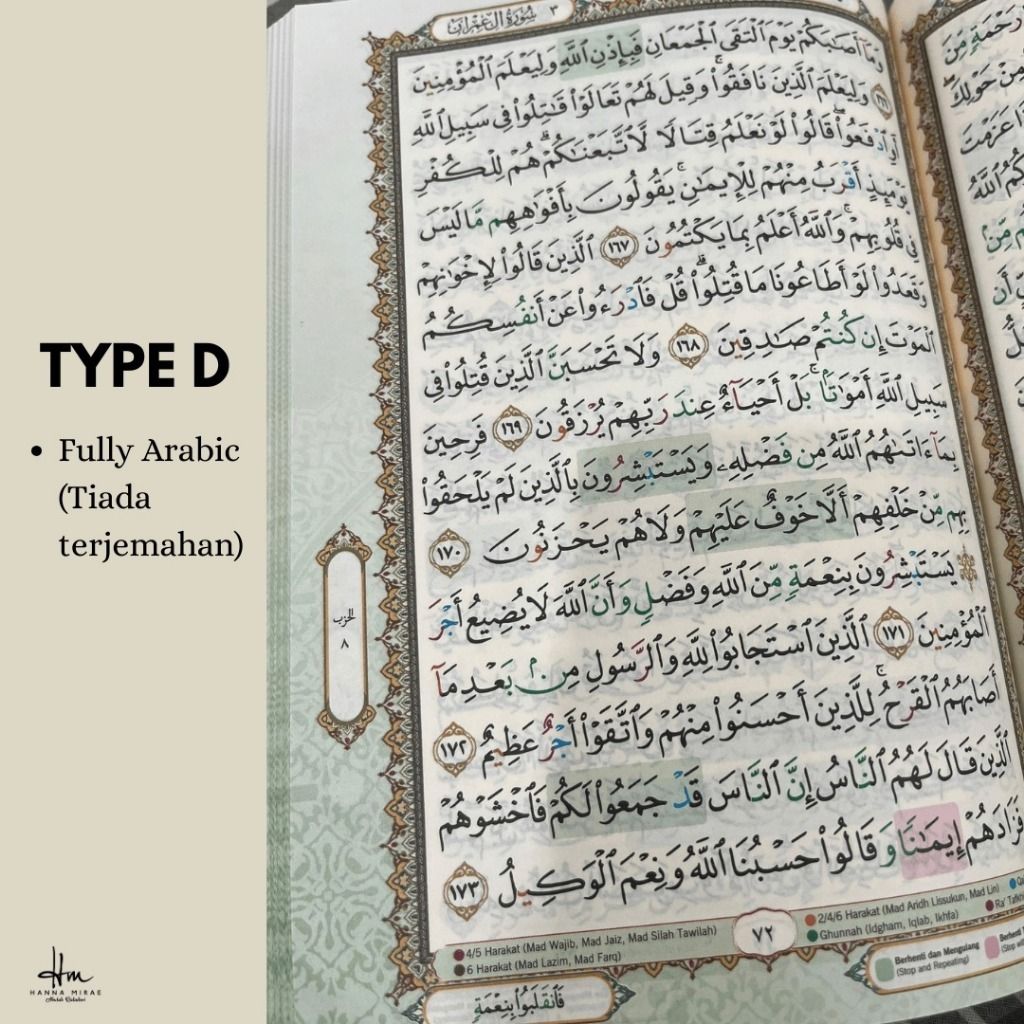 TYPE D
• Fully Arabic
(Tiada
terjemahan)
HANNA MIRAE
٣ سُورَةُ آلِ عِمْرَانَ
وَمَآ أَصَٰبَكُمْ يَوْمَ ٱلْتَقَى ٱلْجَمْعَانِ فَبِإِذْنِ ٱللَّهِ وَلِيَعْلَمَ ٱلْمُؤْمِنِينَ
١٦٦ وَلِيَعْلَمَ ٱلَّذِينَ نَافَقُوا۟ ۚ وَقِيلَ لَهُمْ تَعَالَوْا۟ قَٰتِلُوا۟ فِى سَبِيلِ ٱللَّهِ
أَوِ ٱدْفَعُوا۟ ۖ قَالُوا۟ لَوْ نَعْلَمُ قِتَالًا لَّٱتَّبَعْنَٰكُمْ ۗ هُمْ لِلْكُفْرِ
يَوْمَئِذٍ أَقْرَبُ مِنْهُمْ لِلْإِيمَٰنِ ۚ يَقُولُونَ بِأَفْوَٰهِهِم مَّا لَيْسَ
فِى قُلُوبِهِمْ ۗ وَٱللَّهُ أَعْلَمُ بِمَا يَكْتُمُونَ ١٦٧ ٱلَّذِينَ قَالُوا۟ لِإِخْوَٰنِهِمْ
وَقَعَدُوا۟ لَوْ أَطَاعُونَا مَا قُتِلُوا۟ ۗ قُلْ فَٱدْرَءُوا۟ عَنْ أَنفُسِكُمُ
ٱلْمَوْتَ إِن كُنتُمْ صَٰدِقِينَ ١٦٨ وَلَا تَحْسَبَنَّ ٱلَّذِينَ قُتِلُوا۟ فِى
سَبِيلِ ٱللَّهِ أَمْوَٰتًۢا ۚ بَلْ أَحْيَآءٌ عِندَ رَبِّهِمْ يُرْزَقُونَ ١٦٩ فَرِحِينَ
بِمَآ ءَاتَىٰهُمُ ٱللَّهُ مِن فَضْلِهِۦ وَيَسْتَبْشِرُونَ بِٱلَّذِينَ لَمْ يَلْحَقُوا۟
بِهِم مِّنْ خَلْفِهِمْ أَلَّا خَوْفٌ عَلَيْهِمْ وَلَا هُمْ يَحْزَنُونَ ١٧٠
۞ يَسْتَبْشِرُونَ بِنِعْمَةٍ مِّنَ ٱللَّهِ وَفَضْلٍ وَأَنَّ ٱللَّهَ لَا يُضِيعُ أَجْرَ
ٱلْمُؤْمِنِينَ ١٧١ ٱلَّذِينَ ٱسْتَجَابُوا۟ لِلَّهِ وَٱلرَّسُولِ مِنۢ بَعْدِ مَآ
أَصَابَهُمُ ٱلْقَرْحُ ۚ لِلَّذِينَ أَحْسَنُوا۟ مِنْهُمْ وَٱتَّقَوْا۟ أَجْرٌ عَظِيمٌ ١٧٢
ٱلَّذِينَ قَالَ لَهُمُ ٱلنَّاسُ إِنَّ ٱلنَّاسَ قَدْ جَمَعُوا۟ لَكُمْ فَٱخْشَوْهُمْ
فَزَادَهُمْ إِيمَٰنًا وَقَالُوا۟ حَسْبُنَا ٱللَّهُ وَنِعْمَ ٱلْوَكِيلُ ١٧٣
الحزب
٨
4/5 Harakat (Mad Wajib, Mad Jaiz, Mad Silah Tawilah)
6 Harakat (Mad Lazim, Mad Farq)
٧٢
2/4/6 Harakat (Mad Aridh Lissukun, Mad Lin)
Ghunnah (Idgham, Iqlab, Ikhfa)
Ra' Tafkh
Berhenti dan Mengulang
(Stop and Repeating)
Berhenti
(Stop
فَٱنقَلَبُوا۟ بِنِعْمَةٍ